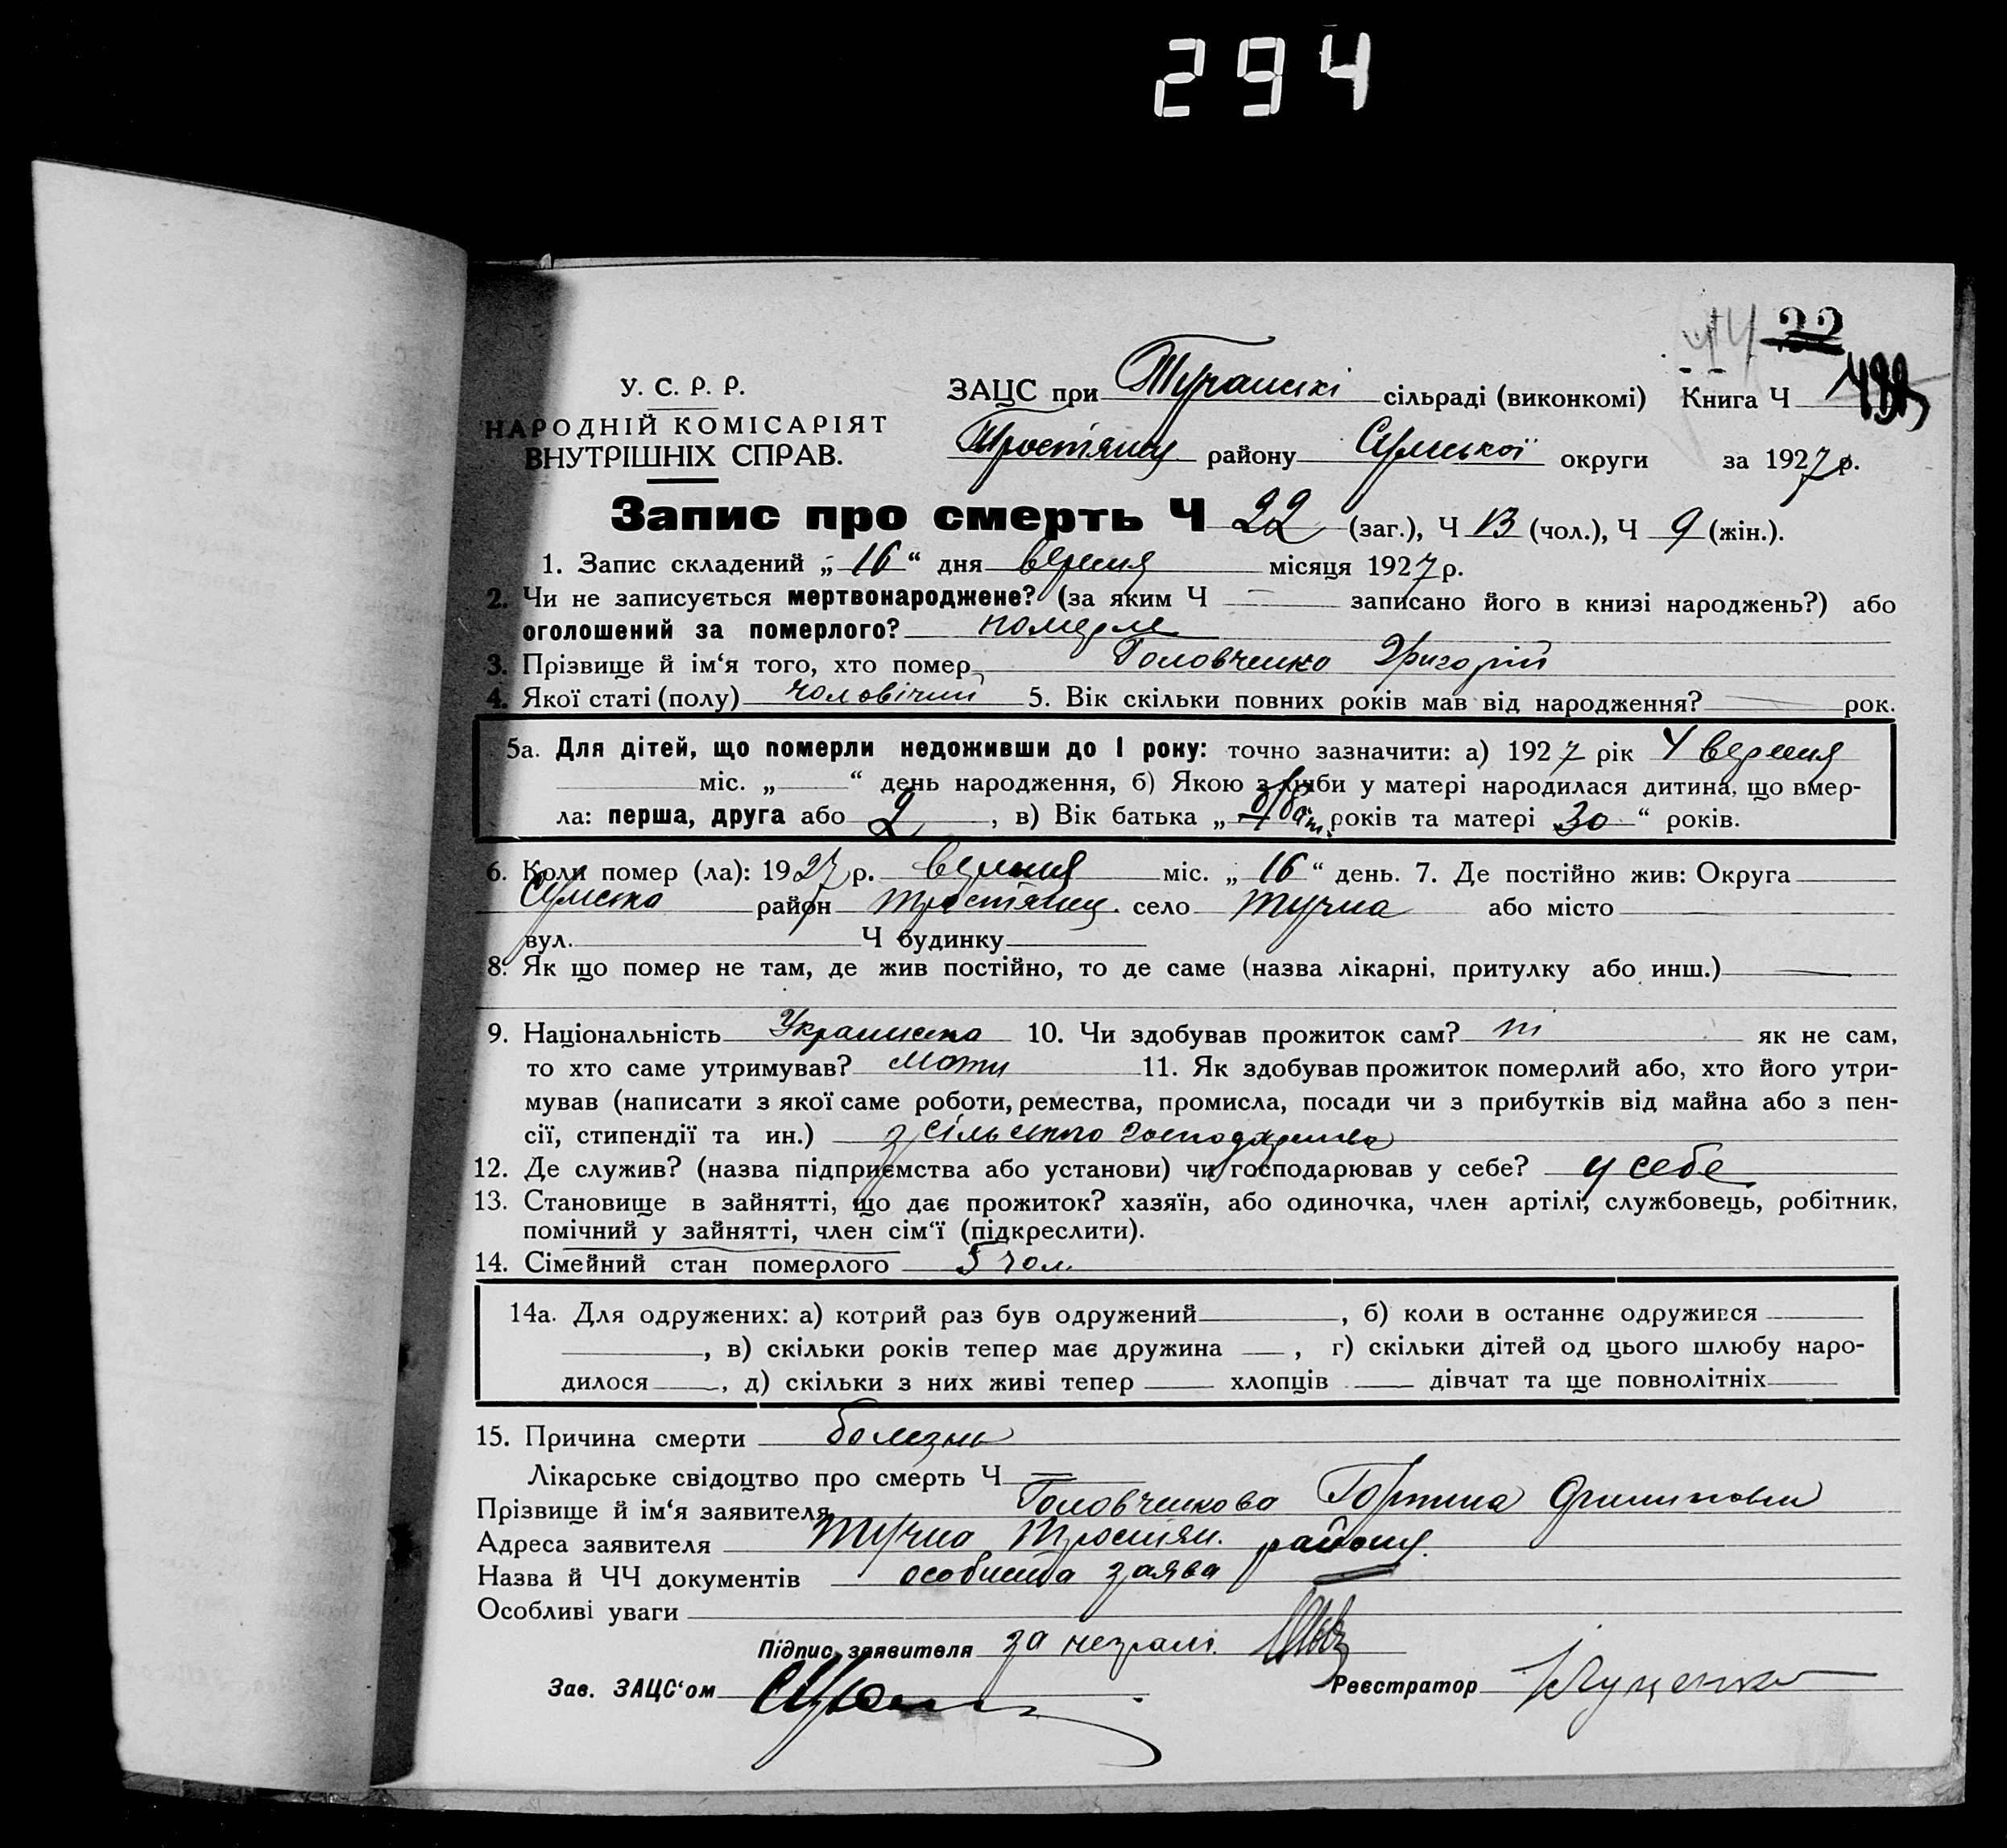 294
22
У. С. Р. Р.
НАРОДНІЙ КОМІСАРІЯТ
ВНУТРІШНІХ СПРАВ.
ЗАЦС при Тучанські сільраді (виконкомі) Книга Ч
Тростянец району Сумської округи за 1927 р.
Запис про смерть Ч 22 (заг.), Ч 13 (чол.), Ч 9 (жін.).
1. Запис складений „ 16 “ дня вересня місяця 1927 р.
2. Чи не записується мертвонароджене? (за яким Ч — записано його в книзі народжень?) або
оголошений за померлого? померле
3. Прізвище й ім‘я того, хто помер Головченко Григорій
4. Якої статі (полу) чоловічий 5. Вік скільки повних років мав від народження? — рок.
5а. Для дітей, що померли недоживши до 1 року: точно зазначити: а) 1927 рік 4 вересня
міс. „ “ день народження, б) Якою з лічби у матері народилася дитина, що вмер-
ла: перша, друга або 2, в) Вік батька „ років та матері 30 “ років.
6. Коли помер (ла): 1927 р. вересня міс. „ 16 “ день. 7. Де постійно жив: Округа
Сумська район Тростянец. село Тучна або місто
вул. Ч будинку
8. Як що помер не там, де жив постійно, то де саме (назва лікарні, притулку або инш.) —
9. Національність Украинска 10. Чи здобував прожиток сам? ні як не сам,
то хто саме утримував? мати 11. Як здобував прожиток померлий або, хто його утри-
мував (написати з якої саме роботи, ремества, промисла, посади чи з прибутків від майна або з пен-
сії, стипендії та ин.) з сільського господарства
12. Де служив? (назва підприємства або установи) чи господарював у себе? у себе
13. Становище в зайнятті, що дає прожиток? хазяїн, або одиночка, член артілі, службовець, робітник,
помічний у зайнятті, член сім‘ї (підкреслити).
14. Сімейний стан померлого 5 чол.
14а. Для одружених: а) котрий раз був одружений , б) коли в останнє одружився
, в) скільки років тепер має дружина , г) скільки дітей од цього шлюбу наро-
дилося , д) скільки з них живі тепер хлопців дівчат та ще повнолітніх
15. Причина смерти болезнь
Лікарське свідоцтво про смерть Ч —
Прізвище й ім‘я заявителя Головченкова Горпина Филиповна
Адреса заявителя Тучна Тростян. району.
Назва й ЧЧ документів особиста заява
Особливі уваги
Підпис заявителя за неграм.
Зав. ЗАЦС‘ом
Реєстратор Куценко